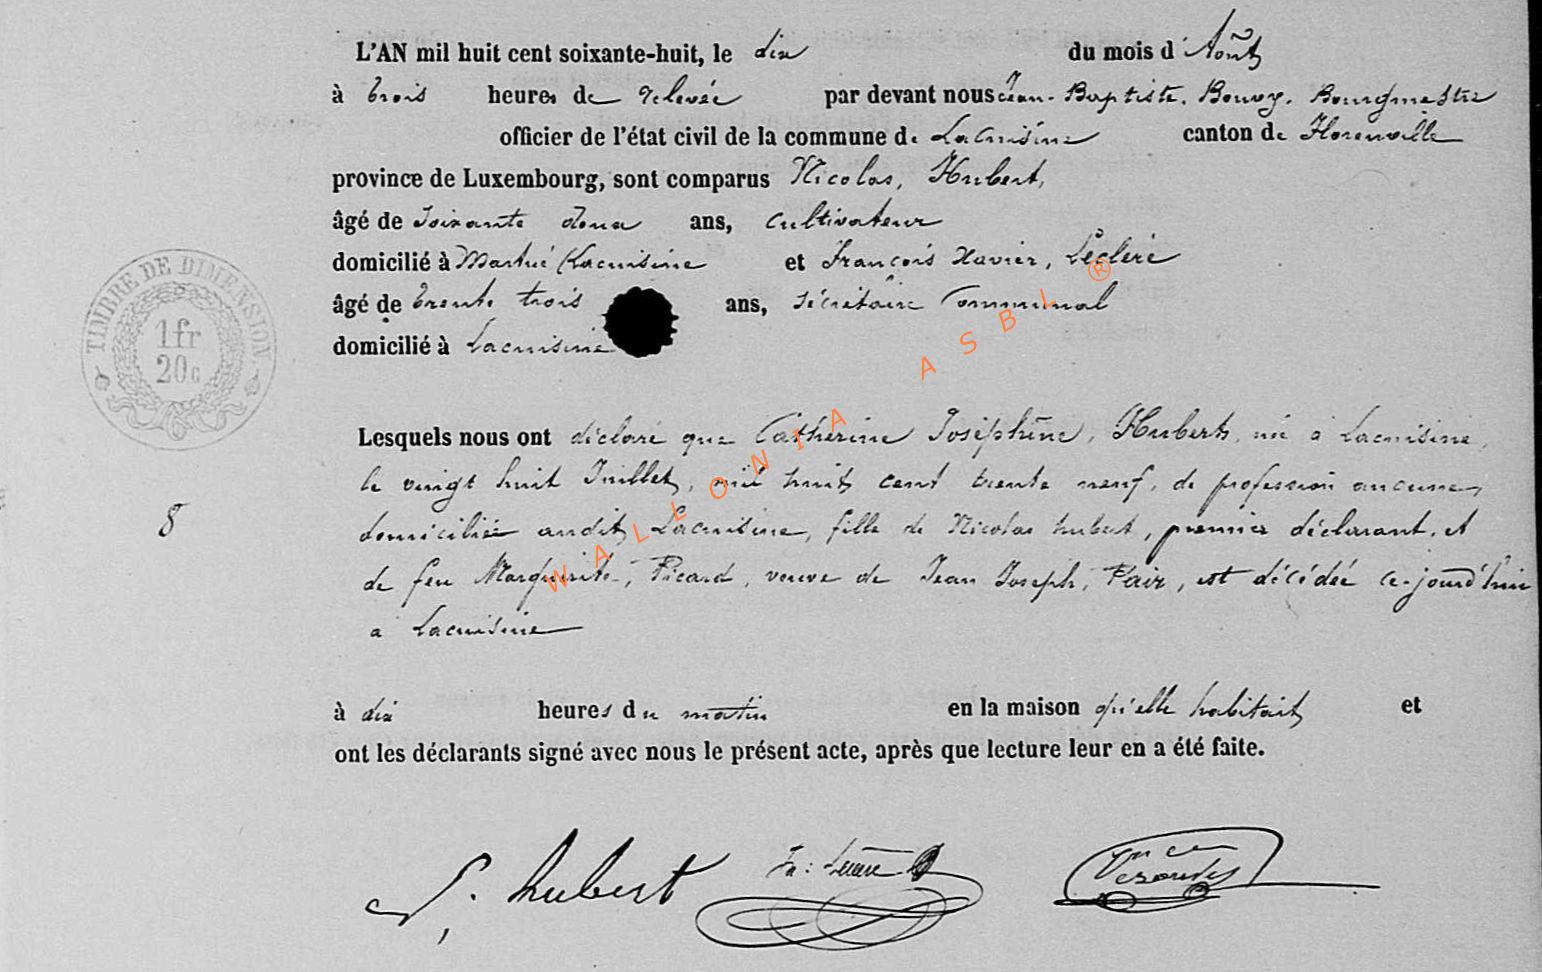 L'AN mil huit cent soixante-huit, le dix du mois d'Août
à trois heures de relevée par devant nous Jean-Baptiste Bouvy, Bourgmestre
officier de l'état civil de la commune de Lacuisine canton de Florenville
province de Luxembourg, sont comparus Nicolas, Hubert,
âgé de soixante ans, cultivateur
domicilié à Martué (Lacuisine et François Xavier, Leclère
âgé de trente trois ans, sécrétaire Communal
domicilié à Lacuisine
TIMBRE DE DIMENSION
1 fr
20 c
Lesquels nous ont déclaré que Catherine Joséphine, Hubert, née à Lacuisine,
le vingt huit Juillet, mil huit cent trente neuf, de profession aucune,
8
domiciliée audit Lacuisine, fille de Nicolas hubert, premier déclarant, et
de feu Marguerite, Picard, veuve de Jean Joseph, est décédée ce-jourd'hui
a Lacuisine
à dix heures du matin en la maison qu'elle habitait et
ont les déclarants signé avec nous le présent acte, après que lecture leur en a été faite.
hubert
WALLONIA ASBL ®